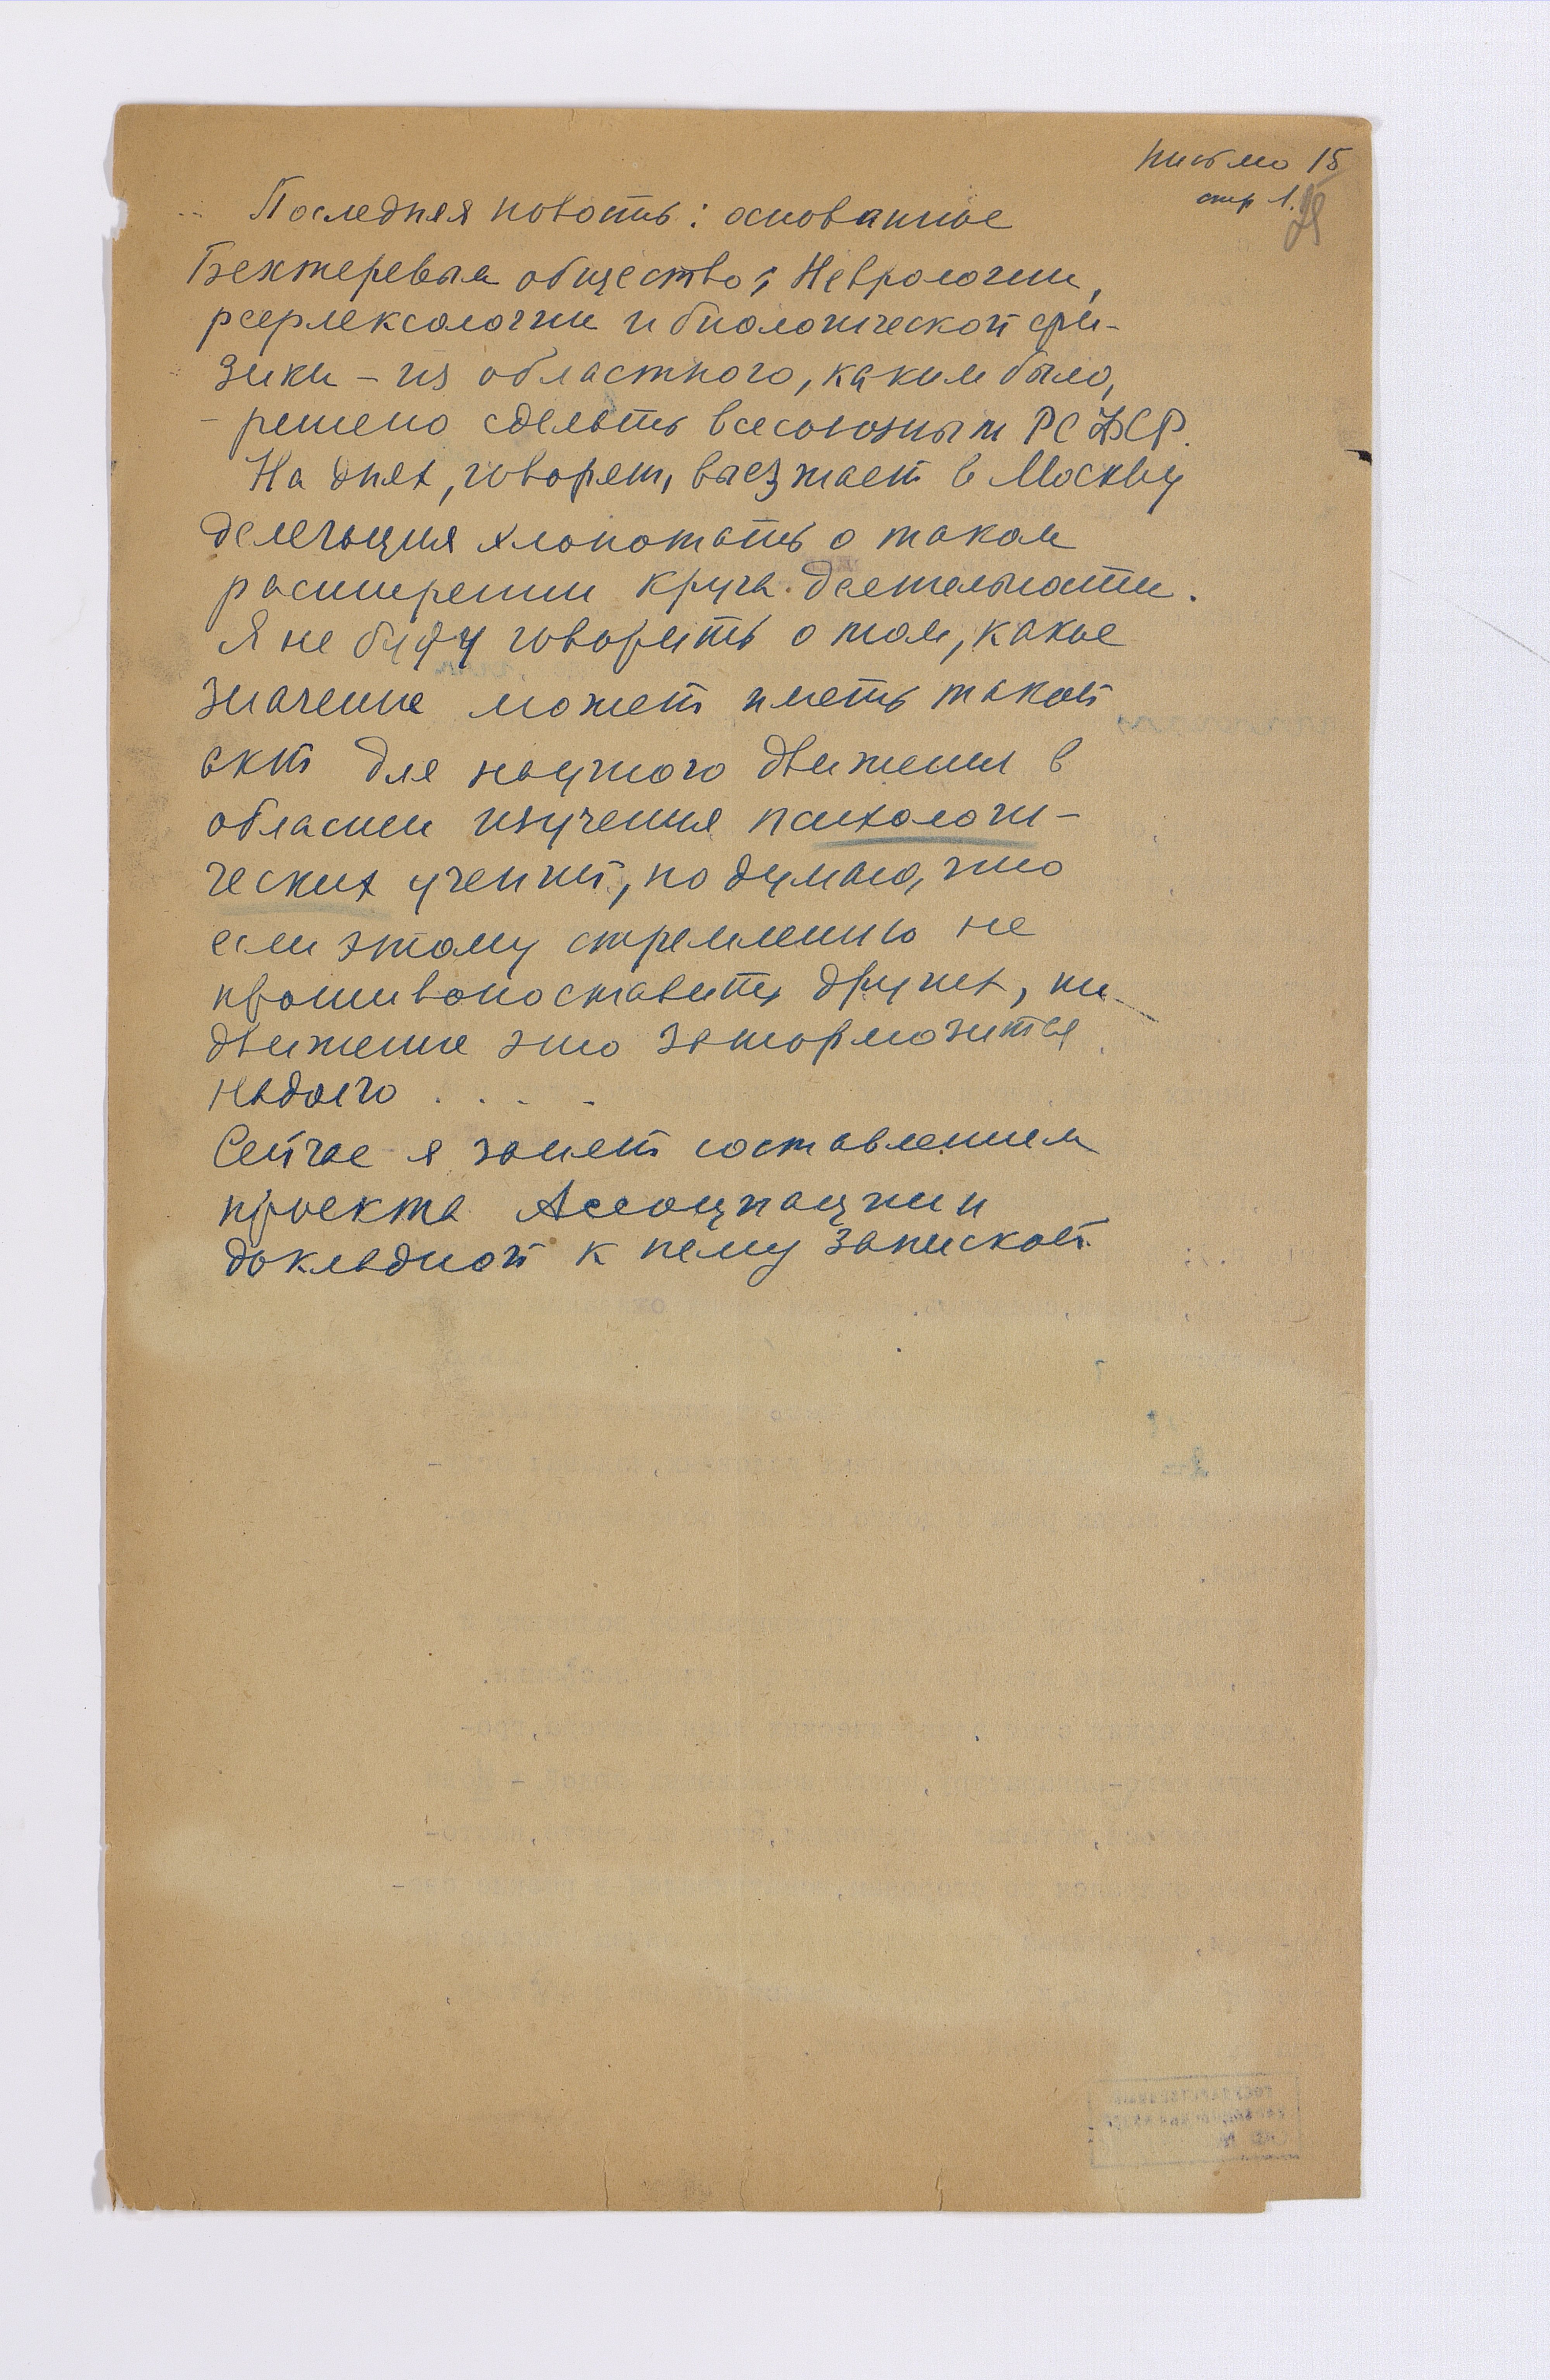 письмо 15
стр 1.
Последняя новость: основанное
Бехтеревым общество: Неврологии,
рефлексологии и биологической фи-
зики – из областного, каким было,
– решено сделать всесоюзным РСФСР.
На днях, говорят, выезжает в Москву
делегация хлопотать о таком
расширении круга деятельности.
Я не буду говорить о том, какое
значение может иметь такой
акт для научного движения в
области изучения психологи-
ческих учений, но думаю, что
если этому стремлению не
противопоставить других, то
движение это затормозится
надолго . . . .
Сейчас я занят составлением
проекта Ассоциации и
докладной к нему запиской.